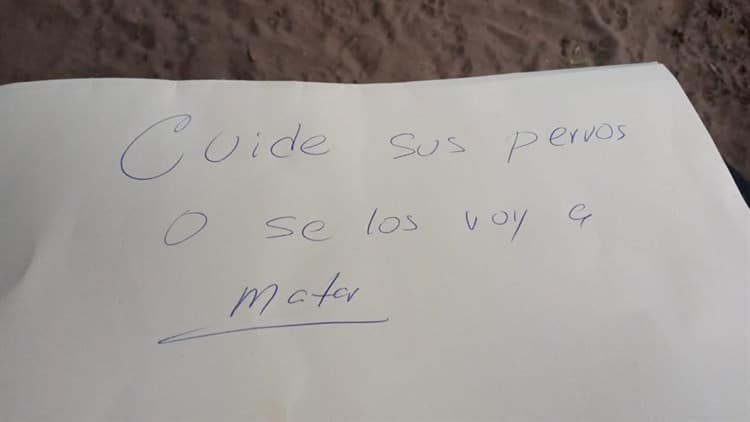 Cuide sus perros
O se los voy a
matar